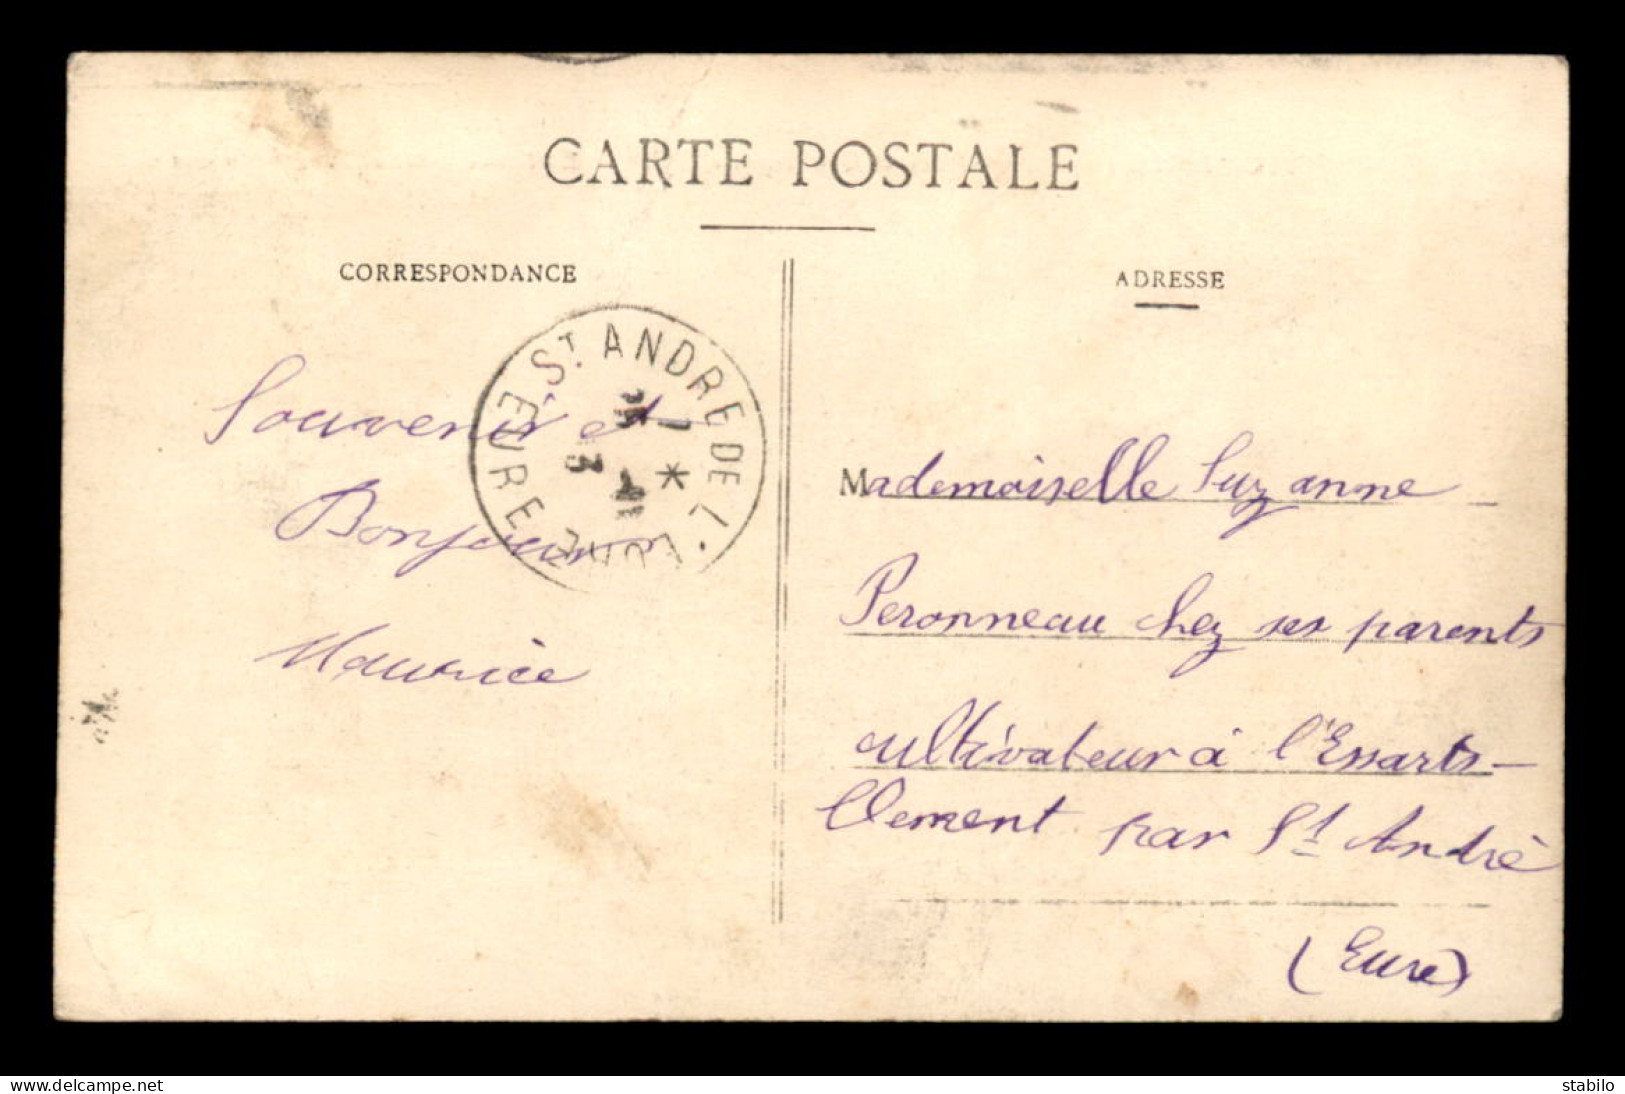 CARTE POSTALE
CORRESPONDANCE
ADRESSE
Souvenir et
Bonjour
Maurice
St. ANDRE DE L'EURE
EURE
Mademoiselle Suzanne
Peronneau chez ses parents
cultivateur à l'Essarts-
Clement par St André
(Eure)
www.delcampe.net
stabilo